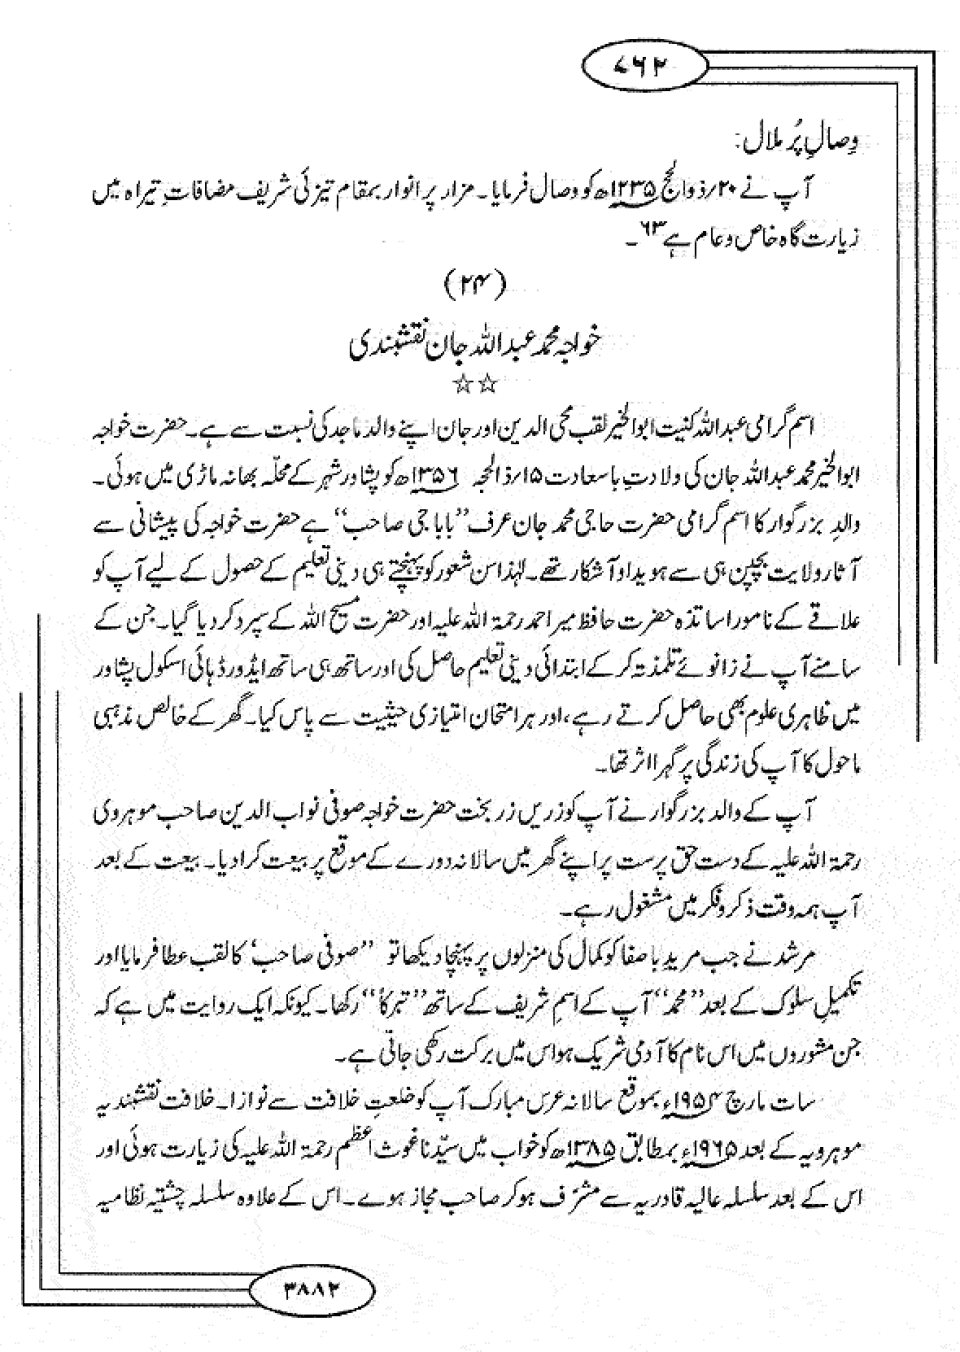 ۷۶۲
وِصالِ پُر ملال:
آپ نے ۲۰/ذوالحج ۱۲۳۵ھ کو وصال فرمایا۔ مزار پر انوار بمقام تیزئی شریف مضافاتِ تیراہ میں
زیارت گاہ خاص و عام ہے ۶۳۔
(۲۴)
خواجہ محمد عبداللہ جان نقشبندی
☆☆
اسم گرامی عبداللہ کنیت ابوالخیر لقب محی الدین اور جان اپنے والد ماجد کی نسبت سے ہے۔ حضرت خواجہ
ابوالخیر محمد عبداللہ جان کی ولادتِ باسعادت ۱۵/ذالحجہ ۱۳۵۶ھ کو پشاور شہر کے محلّہ بھانہ ماڑی میں ہوئی۔
والدِ بزرگوار کا اسم گرامی حضرت حاجی محمد جان عرف ”بابا جی صاحب“ ہے حضرت خواجہ کی پیشانی سے
آثارِ ولایت بچپن ہی سے ہویدا و آشکار تھے۔ لہٰذا سن شعور کو پہنچتے ہی دینی تعلیم کے حصول کے لیے آپ کو
علاقے کے نامور اساتذہ حضرت حافظ میر احمد رحمۃ اللہ علیہ اور حضرت مسیح اللہ کے سپرد کر دیا گیا۔ جن کے
سامنے آپ نے زانوئے تلمذ تہ کر کے ابتدائی دینی تعلیم حاصل کی اور ساتھ ہی ساتھ ایڈورڈ ہائی اسکول پشاور
میں ظاہری علوم بھی حاصل کرتے رہے، اور ہر امتحان امتیازی حیثیت سے پاس کیا۔ گھر کے خالص مذہبی
ماحول کا آپ کی زندگی پر گہرا اثر تھا۔
آپ کے والد بزرگوار نے آپ کو زریں زر بخت حضرت خواجہ صوفی نواب الدین صاحب موہروی
رحمۃ اللہ علیہ کے دست حق پرست پر اپنے گھر میں سالانہ دورے کے موقع پر بیعت کرا دیا۔ بیعت کے بعد
آپ ہمہ وقت ذکر و فکر میں مشغول رہے۔
مرشد نے جب مریدِ باصفا کو کمال کی منزلوں پر پہنچا دیکھا تو ”صوفی صاحب‘ کا لقب عطا فرمایا اور
تکمیلِ سلوک کے بعد ”محمد“ آپ کے اسمِ شریف کے ساتھ ”تبرکاً“ رکھا۔ کیونکہ ایک روایت میں ہے کہ
جن مشوروں میں اس نام کا آدمی شریک ہو اس میں برکت رکھی جاتی ہے۔
سات مارچ ۱۹۵۴ء بموقع سالانہ عرس مبارک آپ کو خلعتِ خلافت سے نوازا۔ خلافت نقشبندیہ
موہرویہ کے بعد ۱۹۶۵ء بمطابق ۱۳۸۵ھ کو خواب میں سیّدنا غوث اعظم رحمۃ اللہ علیہ کی زیارت ہوئی اور
اس کے بعد سلسلہ عالیہ قادریہ سے مشرّف ہو کر صاحب مجاز ہوے۔ اس کے علاوہ سلسلہ چشتیہ نظامیہ
۳۸۸۲